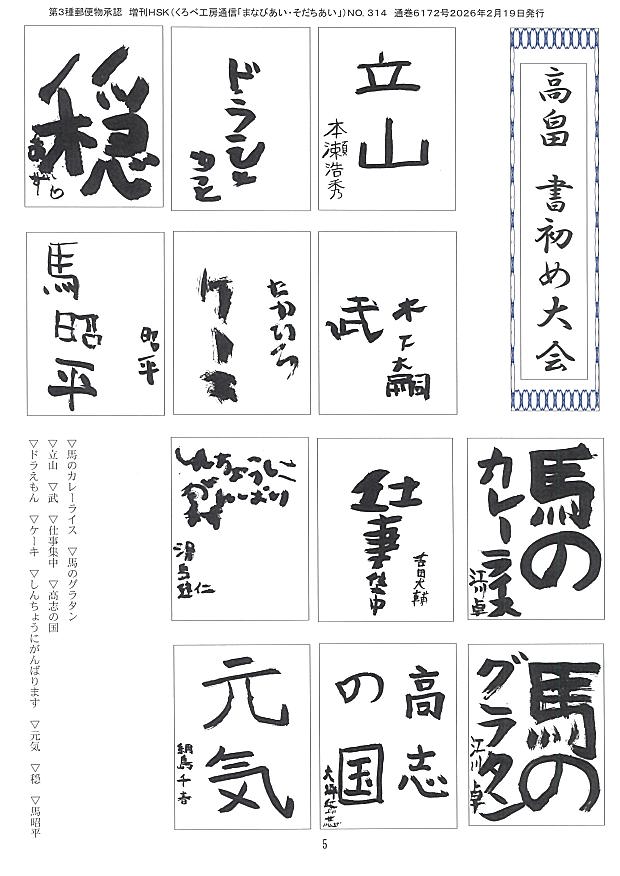 第3種郵便物承認　増刊HSK（くろべ工房通信「まなびあい・そだちあい」）NO. 314　通巻6172号2026年2月19日発行
高畠　書初め大会
立山
本瀬浩秀
ドラえもん
まこと
穏
あずり
木下大嗣
武
たかいろ
ケーキ
昭平
馬昭平
馬の
カレーライス
江川 卓
仕事集中
吉田大輔
しんちょうに
がんばります
馬の
グラタン
江川 卓
高志
の国
元気
綱島千香
▽馬のカレーライス　▽馬のグラタン
▽立山　▽武　▽仕事集中　▽高志の国
▽ドラえもん　▽ケーキ　▽しんちょうにがんばります　▽元気　▽穏　▽馬昭平
5